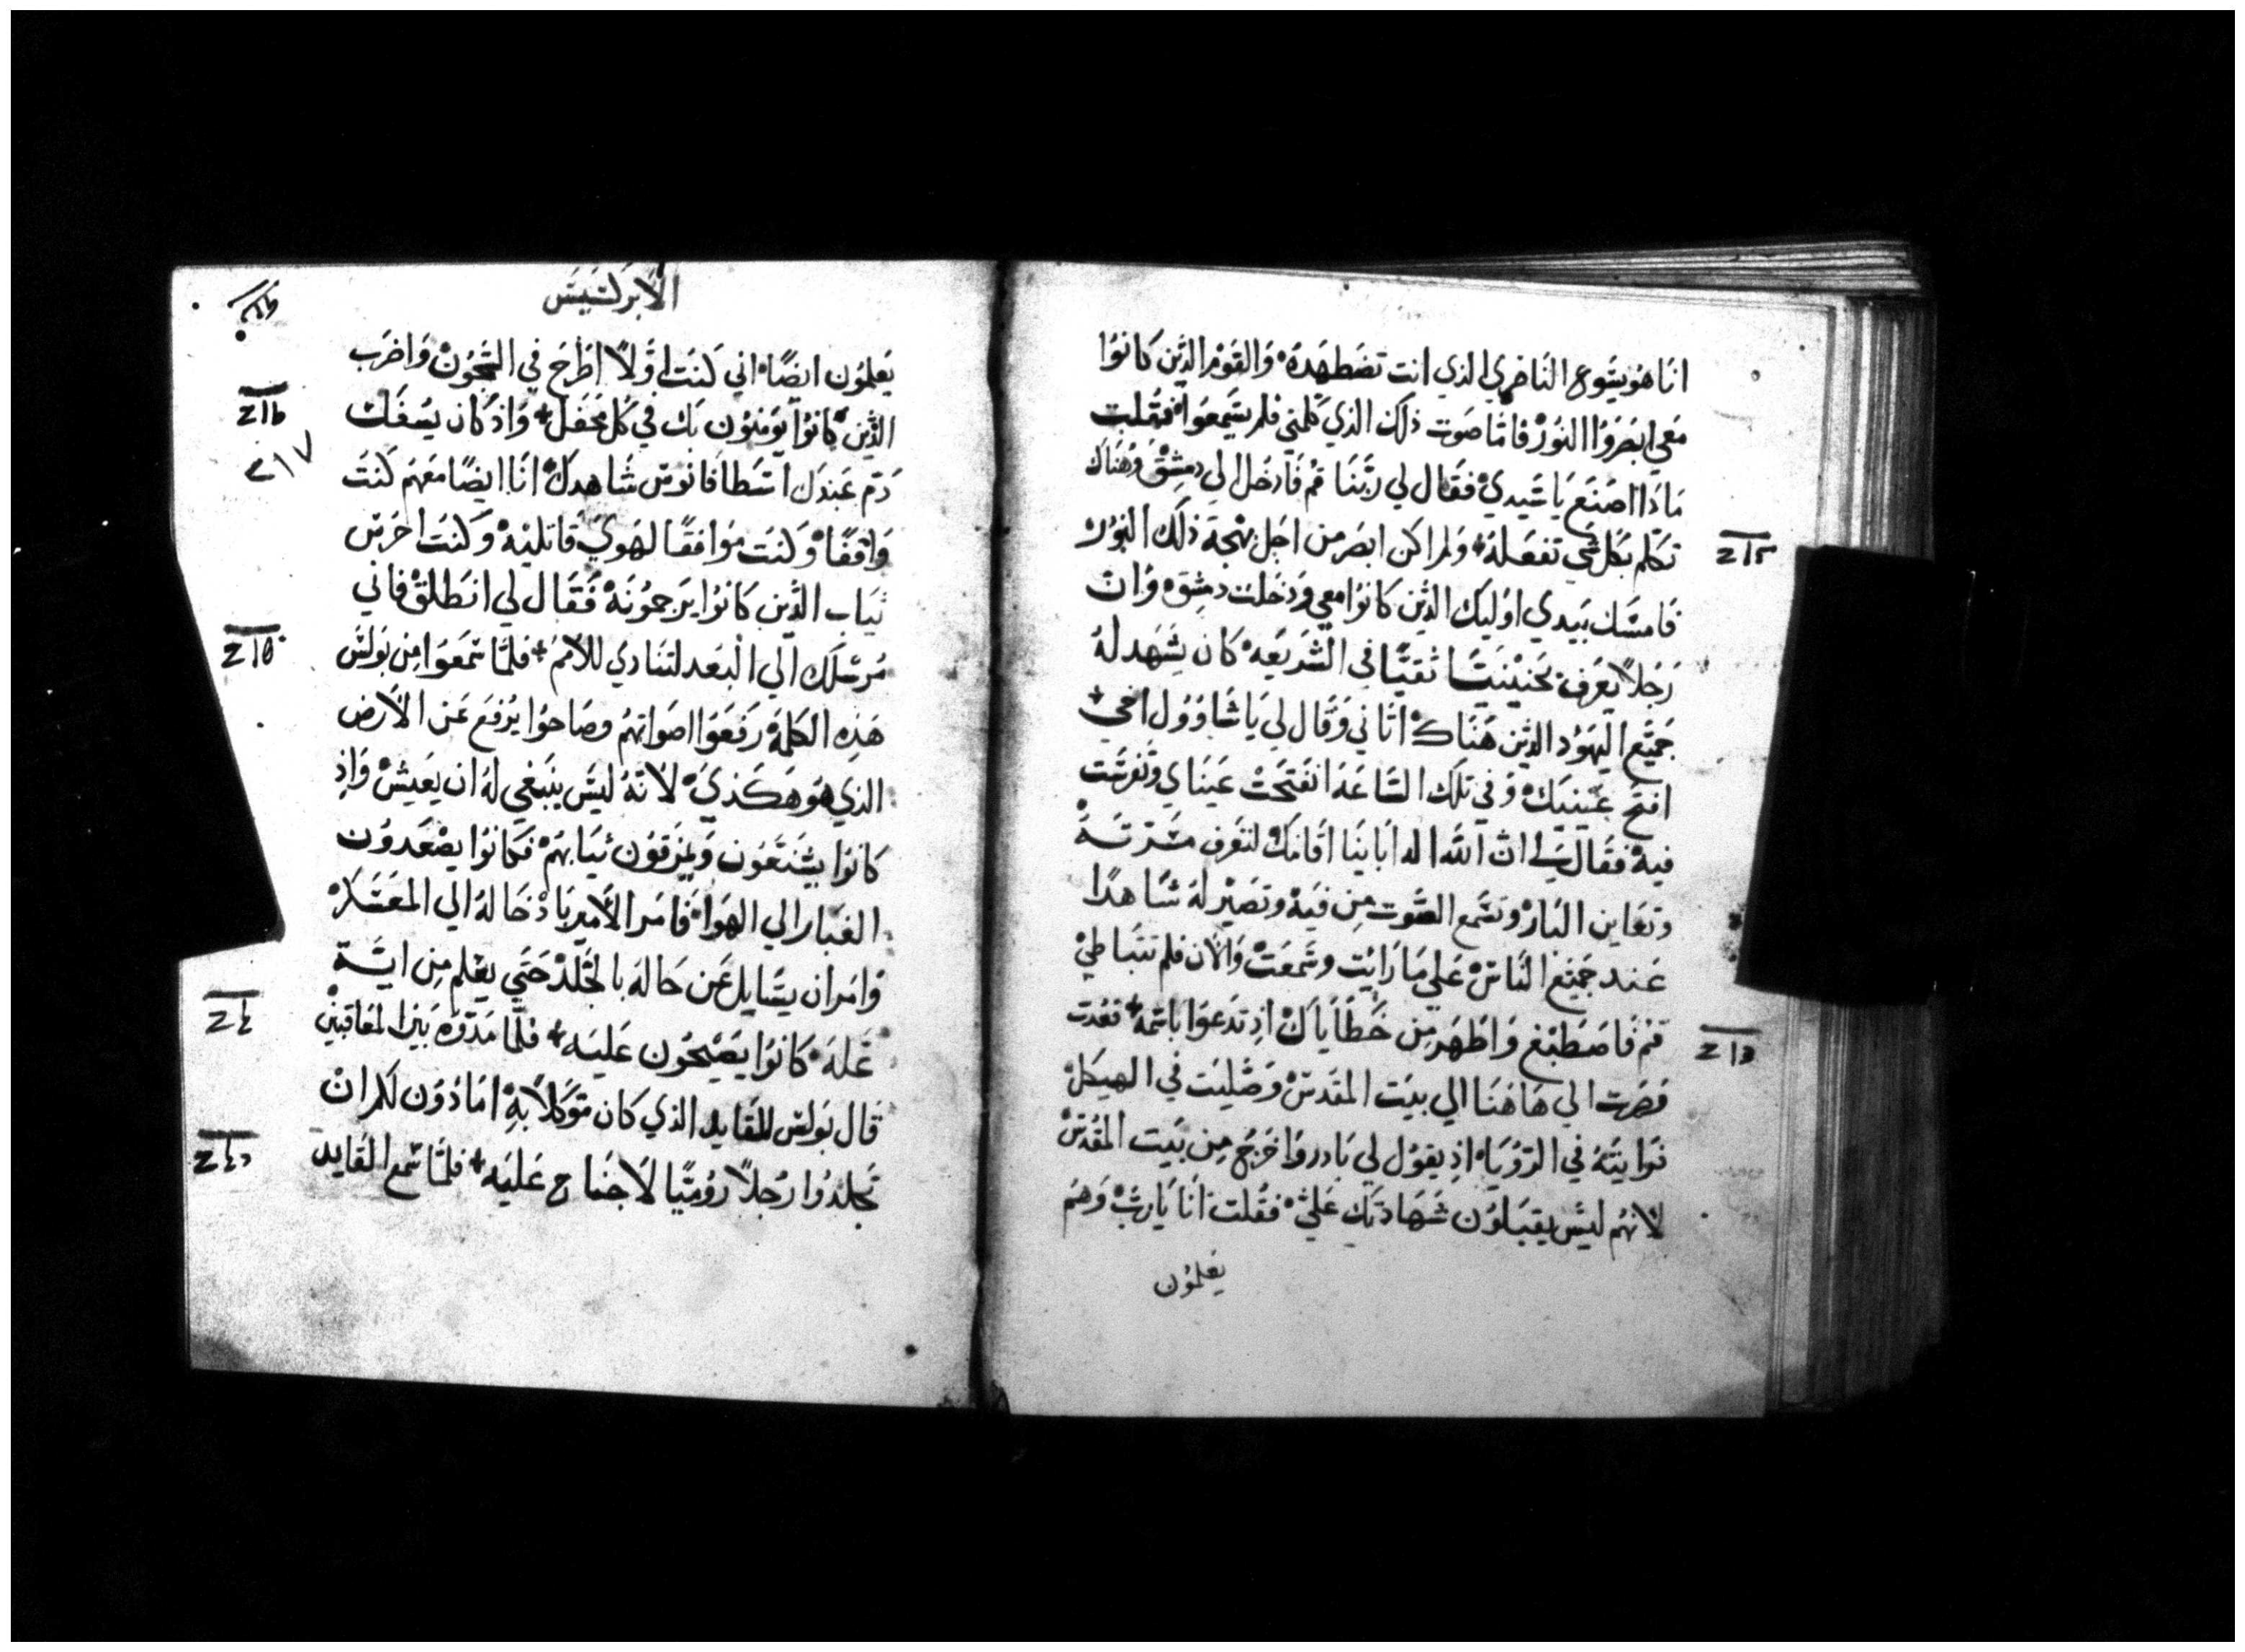 انا هو يشوع الناصري الذي انت تضطهده والقوم الذين كانوا
معي ابصروا النور فاما صوت ذلك الذي كلمني فلم يسمعوا فقلت
ماذا اصنع يا سيدي فقال لي ربنا قم فادخل الي دمشق وهناك
تكلم بكل شي تفعله ولم اكن ابصر من اجل بهجة ذلك النور
فامسك بيدي اوليك الذين كانوا معي ودخلت دمشق وان
رجلا يعرف بحنينيا ثقيا في الشريعه كان يشهد له
جميع اليهود الذين هناك اتاني وقال لي يا شاوول اخي
افتح عينيك وفي تلك الساعة انفتحت عيناي وتفرست
فيه فقال لي ان الله اله ابائنا اقامك لتعرف مسرته
وتعاين البار وتسمع الصوت من فيه وتصير له شاهدا
عند جميع الناس علي ما رايت وسمعت والان فلم تتباطي
قم فاصطبغ واطهر من خطاياك اذ تدعوا باسمه فعدت
فصرت الي هاهنا الي بيت المقدس وصليت في الهيكل
فرايته في الرؤيا اذ يقول لي بادر واخرج من بيت المقدس
لانهم ليس يقبلون شهادتك علي فقلت انا يا رب وهم
يعلمون
الابركسيس
يعلمون ايضا اني كنت اولا اطرح في السجون واضرب
الذين كانوا يومنون بك في كل محفل واذ كان يسفك
دم عبدك اسطافانوس شاهدك انا ايضا معهم كنت
٢١٧
واقفا وكنت موافقا لهوي قاتليه وكنت احرس
ثياب الذين كانوا يرجمونه فقال لي انطلق فاني
مرسلك الي البعد لتنادي للامم فلما سمعوا من بولس
هذه الكلمة رفعوا اصواتهم وصاحوا يرفع عن الارض
الذي هو هكذي لانه ليس ينبغي له ان يعيش واذ
كانوا يشنعون ويمزقون ثيابهم فكانوا يصعدون
الغبار الي الهوا فامر الامير بادخاله الي المعسكر
وامر ان يسايل عن حاله بالجلد حتي يعلم من اية
علة كانوا يصيحون عليه فلما مدوه بين المعاقبين
قال بولس للقايد الذي كان موكلا به اماذون لكم ان
تجلدوا رجلا روميا لا جناح عليه فلما سمع القايد